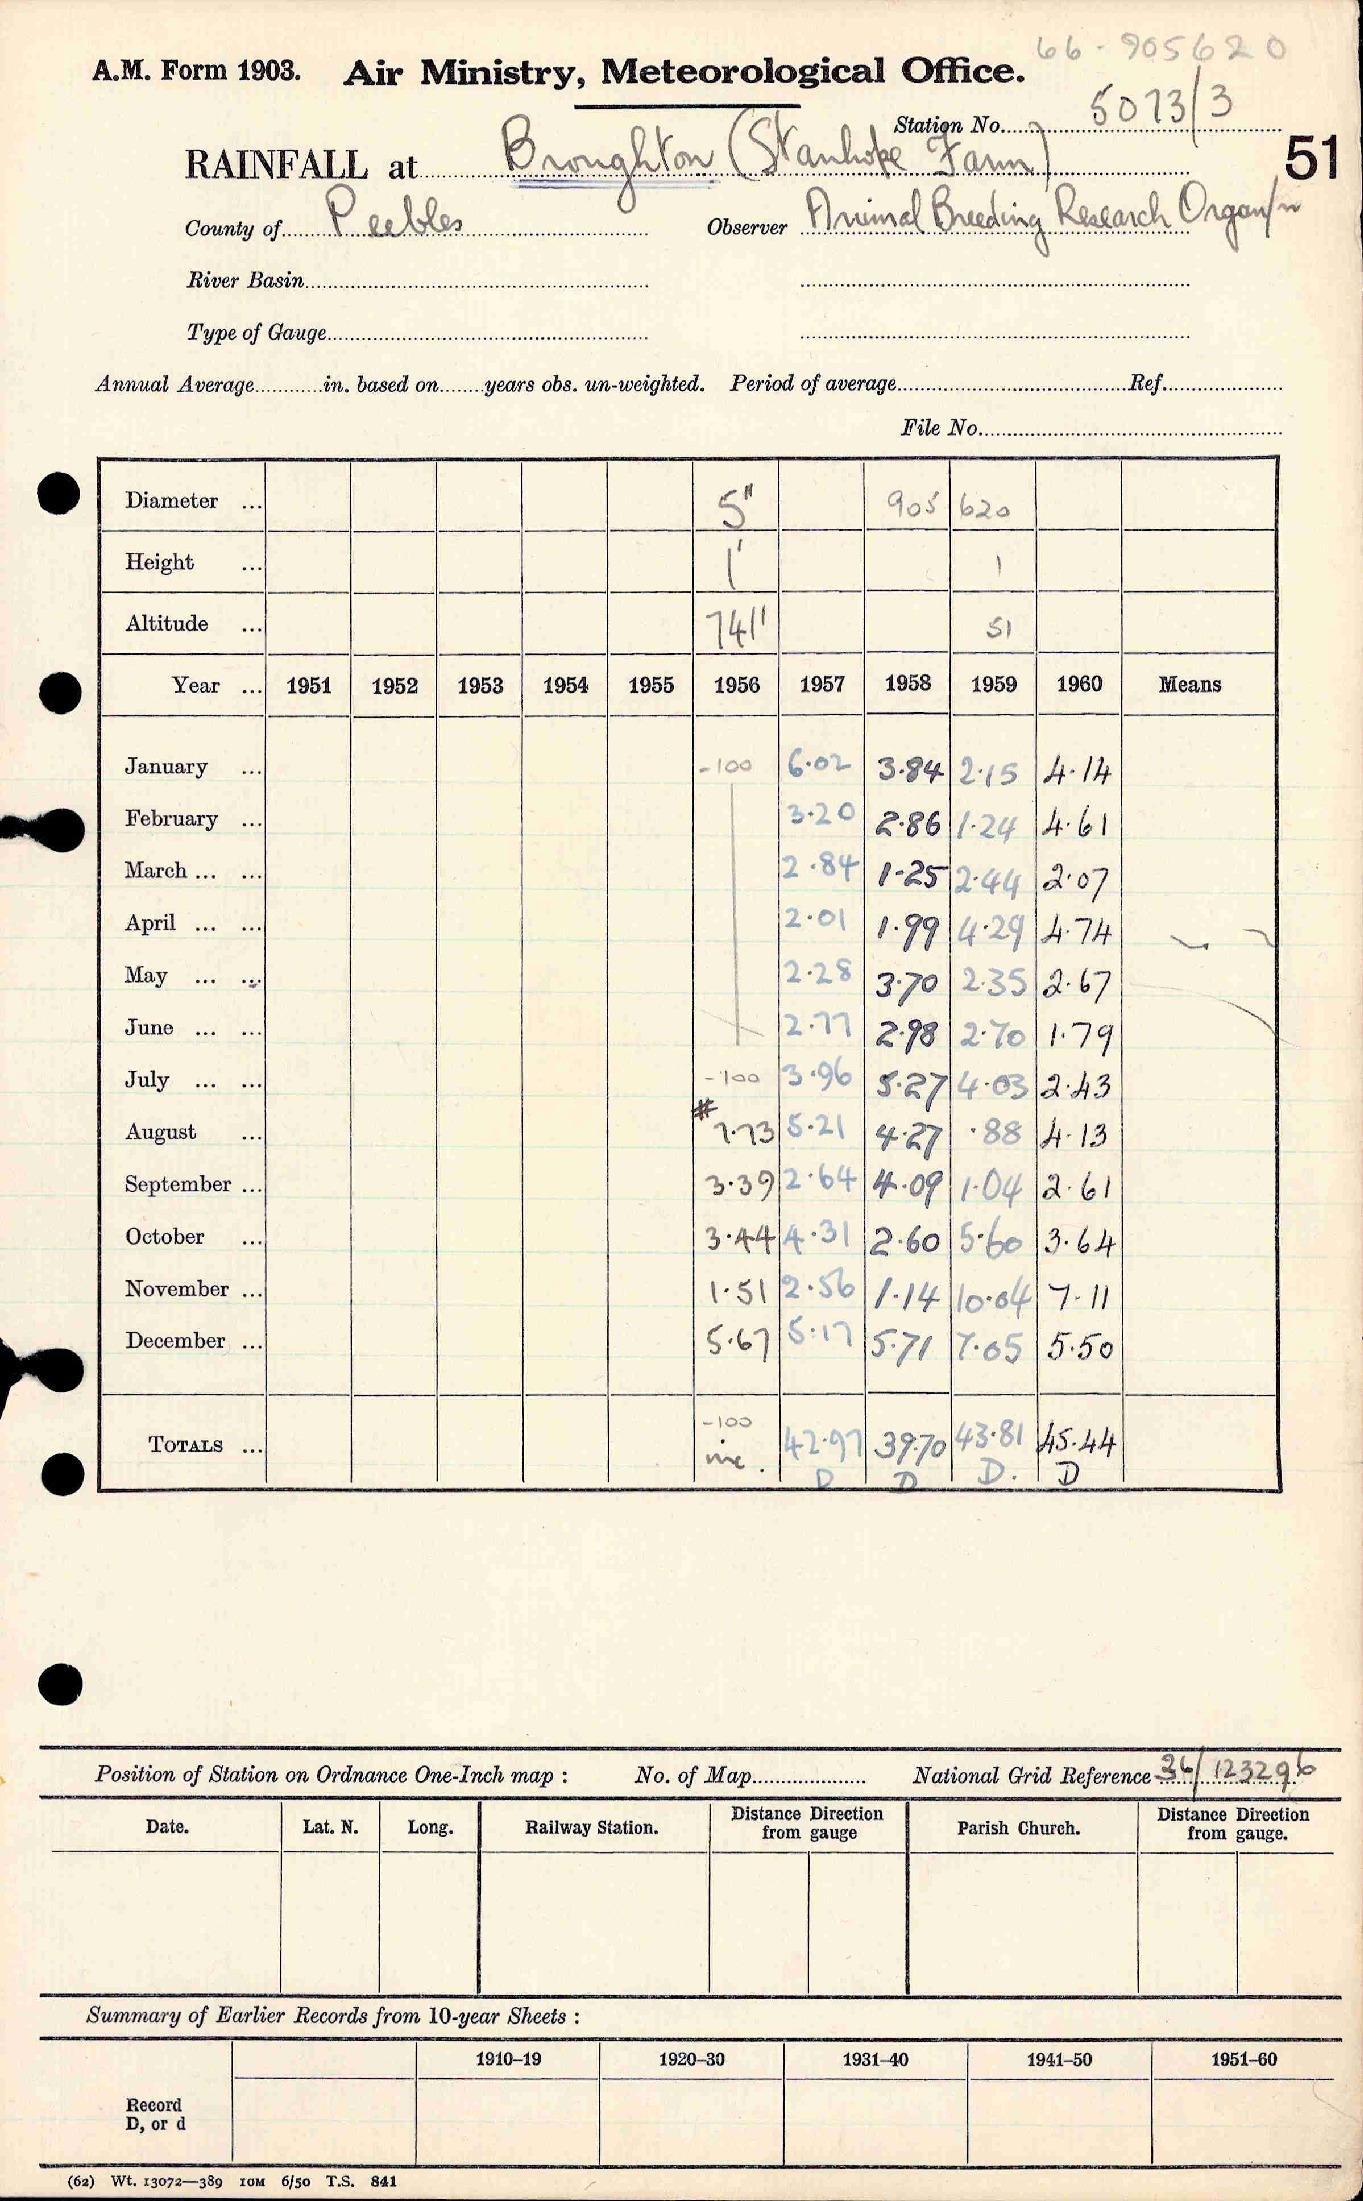 66-905620
A.M. Form 1903. Air Ministry, Meteorological Office.
Station No. 5073/3
RAINFALL at Broughton (Stanhope Farm) 51
County of Peebles Observer Animal Breeding Research Organ/n
River Basin
Type of Gauge
Annual Average in. based on years obs. un-weighted. Period of average Ref.
File No.
Diameter ... 5" 905 620
Height ... 1' 1
Altitude ... 741' 51
Year ... 1951 1952 1953 1954 1955 1956 1957 1958 1959 1960 Means
January ... -100 6.02 3.84 2.15 4.14
February ... 3.20 2.86 1.24 4.61
March ... ... 2.84 1.25 2.44 2.07
April ... ... 2.01 1.99 4.29 4.74
May ... ... 2.28 3.70 2.35 2.67
June ... ... 2.77 2.98 2.70 1.79
July ... ... -100 3.96 5.27 4.03 2.43
August ... # 7.73 5.21 4.27 .88 4.13
September ... 3.39 2.64 4.09 1.04 2.61
October ... 3.44 4.31 2.60 5.60 3.64
November ... 1.51 2.56 1.14 10.04 7.11
December ... 5.67 5.17 5.71 7.05 5.50
-100
TOTALS ... inc. 42.97 39.70 43.81 45.44
D D D. D
Position of Station on Ordnance One-Inch map : No. of Map National Grid Reference 36/123296
Date. Lat. N. Long. Railway Station. Distance Direction from gauge Parish Church. Distance Direction from gauge.
Summary of Earlier Records from 10-year Sheets :
1910–19 1920–30 1931–40 1941–50 1951–60
Record
D, or d
(62) Wt. 13072—389 10M 6/50 T.S. 841